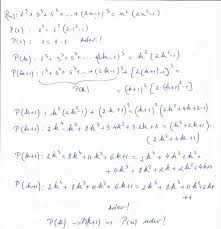 P(n): 1³+3³+5³+...+(2n-1)³ = n²(2n²-1)
P(1): 1³ = 1²(2·1²-1)
P(1): 1 = 1·1 ader!
P(k): 1³+3³+5³+...+(2k-1)³ = k²(2k²-1)
P(k+1): 1³+3³+5³+...+(2k-1)³+[2(k+1)-1]³ =
P(k) = (k+1)²[2·(k+1)²-1]
P(k+1): k²(2k²-1)+(2k+1)³ = (k+1)²(2k²+4k+2-1)
P(k+1): 2k⁴-k²+8k³+3·4k²+3·2k+1 = (k²+2k+1)·
(2k²+4k+1)
P(k+1): 2k⁴+8k³+11k²+6k+1 = 2k⁴+4k³+k²+
+4k³+8k²+2k+2k²+4k+1
P(k+1): 2k⁴+8k³+11k²+6k+1 = 2k⁴+8k³+11k²+6k+
+1
ader!
P(k) → P(k+1) → P(n) ader!